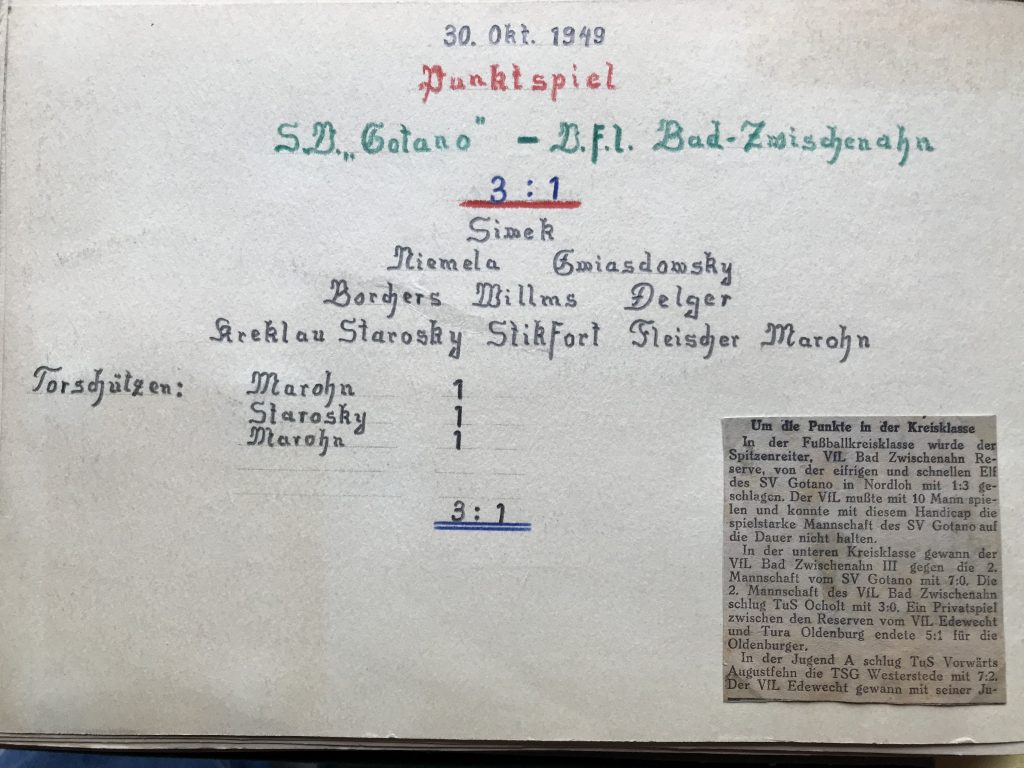 30. Okt. 1949
Punktspiel
S.V. „Gotano" - V.f.l. Bad-Zwischenahn
3 : 1
Simek
Niemela Gwiasdowsky
Borchers Willms Delger
Kreklau Starosky Stikfort Fleischer Marohn
Torschützen: Marohn 1
Starosky 1
Marohn 1
3 : 1
Um die Punkte in der Kreisklasse
In der Fußballkreisklasse wurde der
Spitzenreiter, VfL Bad Zwischenahn Re-
serve, von der eifrigen und schnellen Elf
des SV Gotano in Nordloh mit 1:3 ge-
schlagen. Der VfL mußte mit 10 Mann spie-
len und konnte mit diesem Handicap die
spielstarke Mannschaft des SV Gotano auf
die Dauer nicht halten.
In der unteren Kreisklasse gewann der
VfL Bad Zwischenahn III gegen die 2.
Mannschaft vom SV Gotano mit 7:0. Die
2. Mannschaft des VfL Bad Zwischenahn
schlug TuS Ocholt mit 3:0. Ein Privatspiel
zwischen den Reserven vom VfL Edewecht
und Tura Oldenburg endete 5:1 für die
Oldenburger.
In der Jugend A schlug TuS Vorwärts
Augustfehn die TSG Westerstede mit 7:2.
Der VfL Edewecht gewann mit seiner Ju-